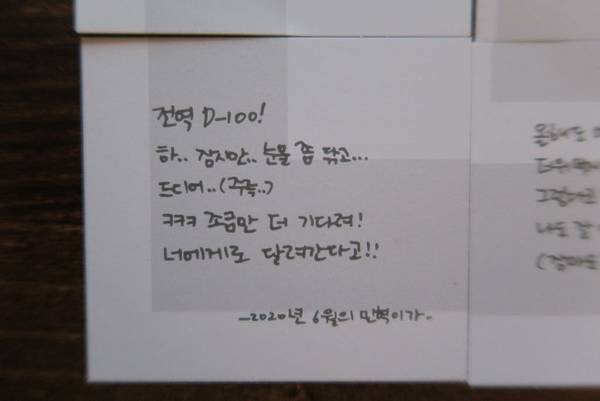 전역 D-100!
하.. 잠지만.. 눈물 좀 닦고...
드디어..(주륵..)
ㅋㅋㅋ 조금만 더 기다려!
너에게로 달려간다고!!
-2020년 6월의 민혁이가-
올해도
그럼에도
나도 잘